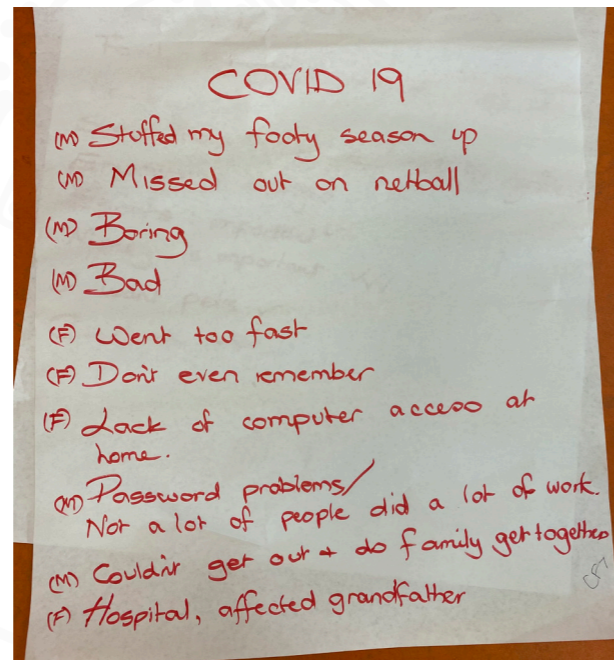 COVID 19
(M) Stuffed my footy season up
(M) Missed out on netball
(M) Boring
(M) Bad
(F) Went too fast
(F) Don't even remember
(F) Lack of computer access at
home.
(M) Password problems/
Not a lot of people did a lot of work.
(M) Couldn't get out + do family get together
(F) Hospital, affected grandfather